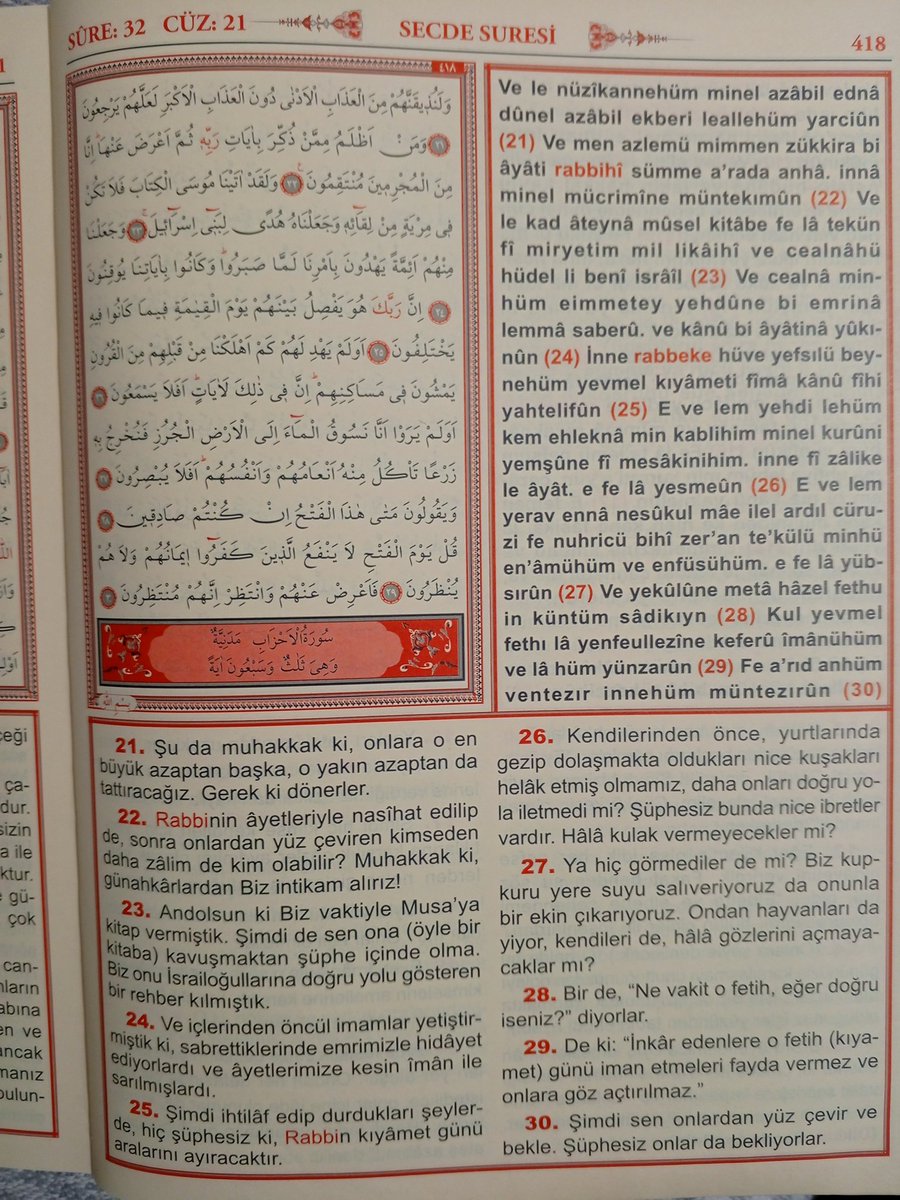 SÛRE: 32 CÜZ: 21
SECDE SURESİ
418
٤١٨
وَلَنُذٖيقَنَّهُمْ مِنَ الْعَذَابِ الْاَدْنٰى دُونَ الْعَذَابِ الْاَكْبَرِ لَعَلَّهُمْ يَرْجِعُونَ
﴿٢١﴾ وَمَنْ اَظْلَمُ مِمَّنْ ذُكِّرَ بِاٰيَاتِ رَبِّهٖ ثُمَّ اَعْرَضَ عَنْهَا اِنَّا
مِنَ الْمُجْرِمٖينَ مُنْتَقِمُونَ ﴿٢٢﴾ وَلَقَدْ اٰتَيْنَا مُوسَى الْكِتَابَ فَلَا تَكُنْ
فٖى مِرْيَةٍ مِنْ لِقَائِهٖ وَجَعَلْنَاهُ هُدًى لِبَنٖى اِسْرَائٖيلَ ﴿٢٣﴾ وَجَعَلْنَا
مِنْهُمْ اَئِمَّةً يَهْدُونَ بِاَمْرِنَا لَمَّا صَبَرُوا وَكَانُوا بِاٰيَاتِنَا يُوقِنُونَ
﴿٢٤﴾ اِنَّ رَبَّكَ هُوَ يَفْصِلُ بَيْنَهُمْ يَوْمَ الْقِيٰمَةِ فٖيمَا كَانُوا فٖيهِ
يَخْتَلِفُونَ ﴿٢٥﴾ اَوَلَمْ يَهْدِ لَهُمْ كَمْ اَهْلَكْنَا مِنْ قَبْلِهِمْ مِنَ الْقُرُونِ
يَمْشُونَ فٖى مَسَاكِنِهِمْ اِنَّ فٖى ذٰلِكَ لَاٰيَاتٍ اَفَلَا يَسْمَعُونَ ﴿٢٦﴾
اَوَلَمْ يَرَوْا اَنَّا نَسُوقُ الْمَاءَ اِلَى الْاَرْضِ الْجُرُزِ فَنُخْرِجُ بِهٖ
زَرْعًا تَاْكُلُ مِنْهُ اَنْعَامُهُمْ وَاَنْفُسُهُمْ اَفَلَا يُبْصِرُونَ ﴿٢٧﴾
وَيَقُولُونَ مَتٰى هٰذَا الْفَتْحُ اِنْ كُنْتُمْ صَادِقٖينَ ﴿٢٨﴾
قُلْ يَوْمَ الْفَتْحِ لَا يَنْفَعُ الَّذٖينَ كَفَرُوا اٖيمَانُهُمْ وَلَا هُمْ
يُنْظَرُونَ ﴿٢٩﴾ فَاَعْرِضْ عَنْهُمْ وَانْتَظِرْ اِنَّهُمْ مُنْتَظِرُونَ ﴿٣٠﴾
سُورَةُ الْاَحْزَابِ مَدَنِيَّةٌ
وَهِيَ ثَلٰثٌ وَسَبْعُونَ اٰيَةً
بِسْمِ اللّٰهِ
Ve le nüzîkannehüm minel azâbil ednâ
dûnel azâbil ekberi leallehüm yarciûn
(21) Ve men azlemü mimmen zükkira bi
âyâti rabbihî sümme a'rada anhâ. innâ
minel mücrimîne müntekımûn (22) Ve
le kad âteynâ mûsel kitâbe fe lâ tekün
fî miryetim mil likâihî ve cealnâhü
hüdel li benî isrâîl (23) Ve cealnâ min-
hüm eimmetey yehdûne bi emrinâ
lemmâ saberû. ve kânû bi âyâtinâ yûkı-
nûn (24) İnne rabbeke hüve yefsılü bey-
nehüm yevmel kıyâmeti fîmâ kânû fîhi
yahtelifûn (25) E ve lem yehdi lehüm
kem ehleknâ min kablihim minel kurûni
yemşûne fî mesâkinihim. inne fî zâlike
le âyât. e fe lâ yesmeûn (26) E ve lem
yerav ennâ nesûkul mâe ilel ardıl cüru-
zi fe nuhricü bihî zer'an te'külü minhü
en'âmühüm ve enfüsühüm. e fe lâ yüb-
sırûn (27) Ve yekûlûne metâ hâzel fethu
in küntüm sâdikıyn (28) Kul yevmel
fethı lâ yenfeullezîne keferû îmânühüm
ve lâ hüm yünzarûn (29) Fe a'rıd anhüm
ventezır innehüm müntezırûn (30)
21. Şu da muhakkak ki, onlara o en
büyük azaptan başka, o yakın azaptan da
tattıracağız. Gerek ki dönerler.
22. Rabbinin âyetleriyle nasîhat edilip
de, sonra onlardan yüz çeviren kimseden
daha zâlim de kim olabilir? Muhakkak ki,
günahkârlardan Biz intikam alırız!
23. Andolsun ki Biz vaktiyle Musa'ya
kitap vermiştik. Şimdi de sen ona (öyle bir
kitaba) kavuşmaktan şüphe içinde olma.
Biz onu İsrailoğullarına doğru yolu gösteren
bir rehber kılmıştık.
24. Ve içlerinden öncül imamlar yetiştir-
miştik ki, sabrettiklerinde emrimizle hidâyet
ediyorlardı ve âyetlerimize kesin îmân ile
sarılmışlardı.
25. Şimdi ihtilâf edip durdukları şeyler-
de, hiç şüphesiz ki, Rabbin kıyâmet günü
aralarını ayıracaktır.
26. Kendilerinden önce, yurtlarında
gezip dolaşmakta oldukları nice kuşakları
helâk etmiş olmamız, daha onları doğru yo-
la iletmedi mi? Şüphesiz bunda nice ibretler
vardır. Hâlâ kulak vermeyecekler mi?
27. Ya hiç görmediler de mi? Biz kup-
kuru yere suyu salıveriyoruz da onunla
bir ekin çıkarıyoruz. Ondan hayvanları da
yiyor, kendileri de, hâlâ gözlerini açmaya-
caklar mı?
28. Bir de, "Ne vakit o fetih, eğer doğru
iseniz?" diyorlar.
29. De ki: "İnkâr edenlere o fetih (kıya-
met) günü iman etmeleri fayda vermez ve
onlara göz açtırılmaz."
30. Şimdi sen onlardan yüz çevir ve
bekle. Şüphesiz onlar da bekliyorlar.